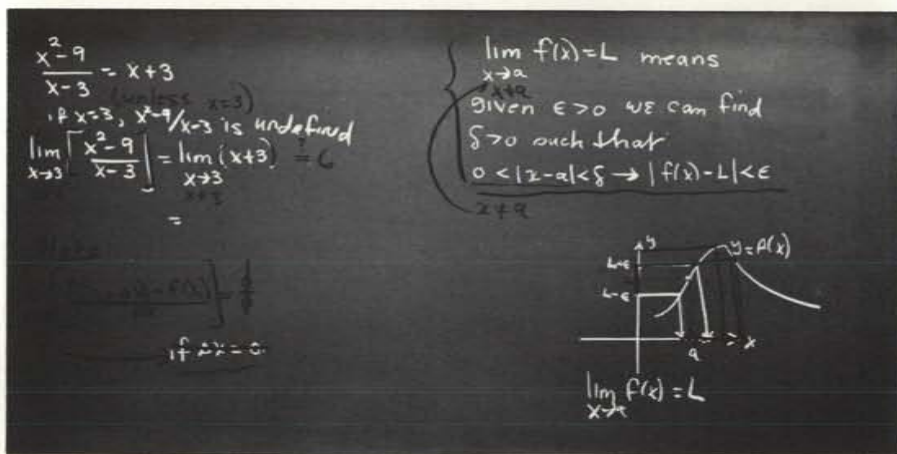 x²-9/x-3 = x+3
(unless x=3)
if x=3, x²-9/x-3 is undefined
lim x→3 [x²-9/x-3] = lim x→3 (x+3) ?= 6
x≠3
=
Note:
f(x)] = 0/0
if Δx=0
lim f(x)=L means
x→a
x≠a
given ε>0 we can find
δ>0 such that
0<|x-a|<δ → |f(x)-L|<ε
x≠a
y
y=f(x)
L-ε
L-ε
a
x
lim f(x)=L
x→a